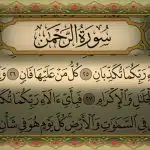 سُورَةُ الرَّحْمَٰن
رَبِّكُمَا تُكَذِّبَانِ ٢٥ كُلُّ مَنْ عَلَيْهَا فَانٍ ٢٦
الْجَلَٰلِ وَالْإِكْرَامِ ٢٧ فَبِأَيِّ ءَالَآءِ رَبِّكُمَا
فِي السَّمَٰوَٰتِ وَالْأَرْضِ كُلَّ يَوْمٍ هُوَ فِي شَأْنٍ